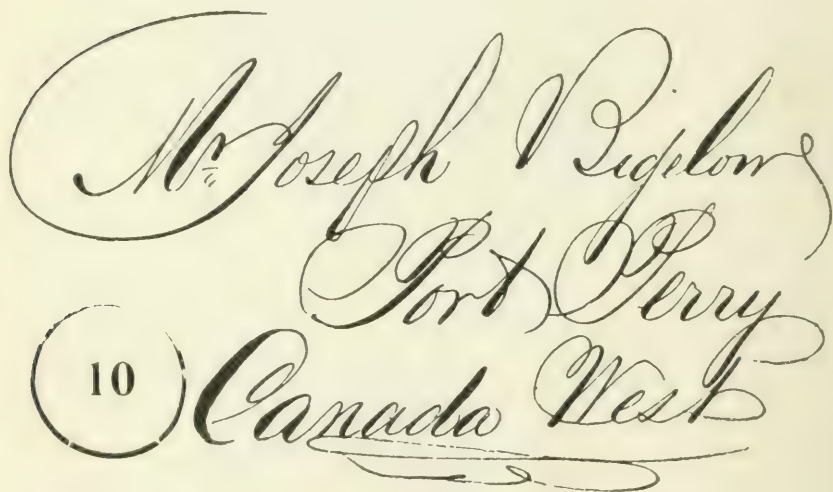 Mr Joseph Bigelow
Port Perry
10
Canada West